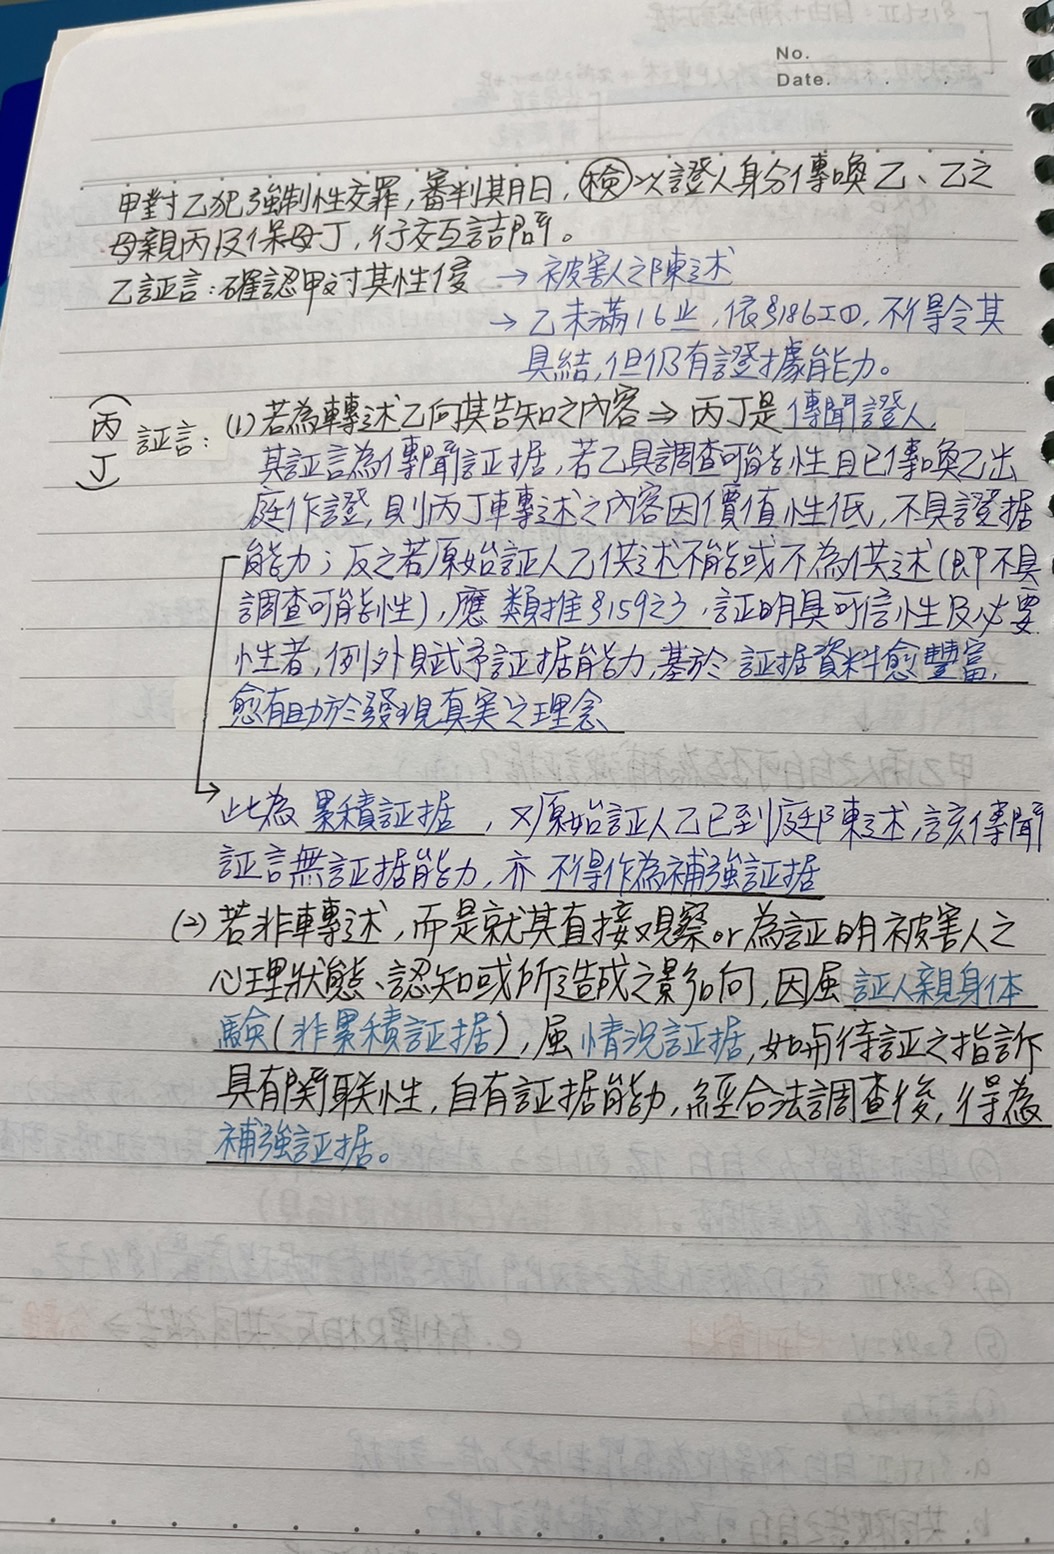 No.
Date.
甲對乙犯強制性交罪,審判其月日,檢以證人身分傳喚乙、乙之
母親丙及保母丁,行交互詰問。
乙証言:確認甲対其性侵 → 被害人之陳述
→ 乙未滿16歲,依§186I①,不得令其
具結,但仍有證據能力。
(丙丁)証言:(1)若為轉述乙向其告知之內容⇒丙丁是傳聞證人,
其証言為傳聞証据,若乙具調查可能性且已傳喚乙出
庭作證,則丙丁轉述之內容因價值性低,不具證据
能力;反之若原始証人乙供述不能或不為供述(即不具
調查可能性),應類推§159之3,証明具可信性及必要
性者,例外賦予証据能力,基於証据資料愈豐富,
愈有助於發現真实之理念
→此為累積証据,又原始証人乙已到庭陳述,該傳聞
証言無証据能力,亦不得作為補強証据
(2)若非轉述,而是就其直接观察or為証明被害人之
心理狀態、認知或所造成之影响,因屬証人親身体
驗(非累積証据),屬情況証据,如與待証之指訴
具有関联性,自有証据能力,經合法調查後,得為
補強証据。